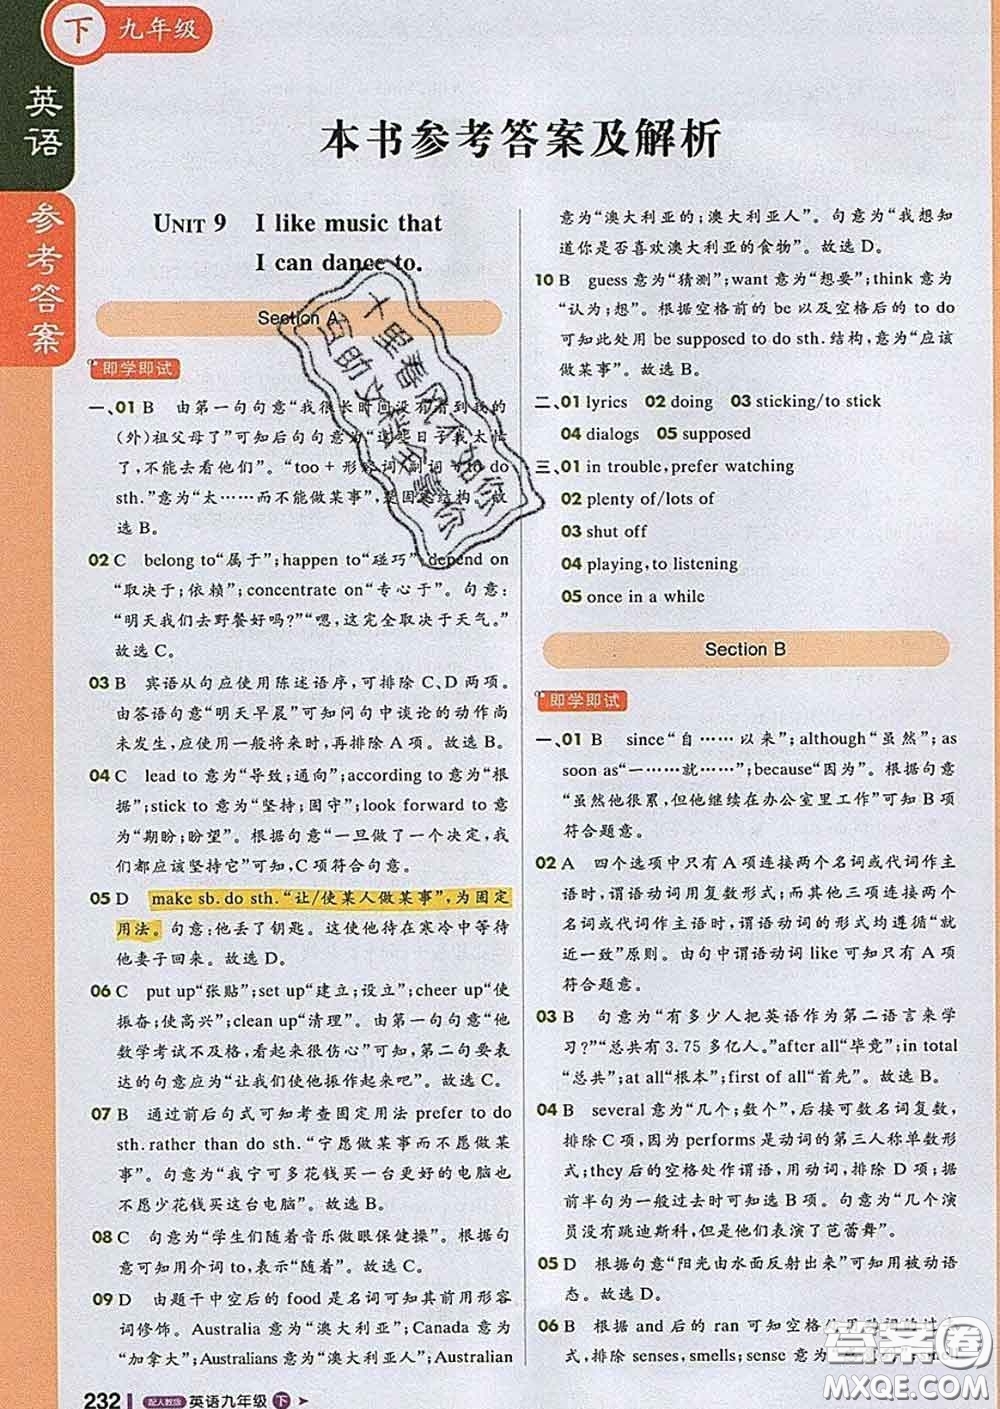 下 九年级
英语
参考答案
本书参考答案及解析
UNIT 9 I like music that
I can dance to.
Section A
即学即试
一、01 B 由第一句句意“我很长时间没有看到我的
(外)祖父母了”可知后句句意为“这些日子我太忙
了,不能去看他们”。“too + 形容词/副词 + to do
sth.”意为“太……而不能做某事”,是固定结构。故
选 B。
02 C belong to“属于”;happen to“碰巧”;depend on
“取决于;依赖”;concentrate on“专心于”。句意:
“明天我们去野餐好吗?”“嗯,这完全取决于天气。”
故选 C。
03 B 宾语从句应使用陈述语序,可排除 C、D 两项。
由答语句意“明天早晨”可知问句中谈论的动作尚
未发生,应使用一般将来时,再排除 A 项。故选 B。
04 C lead to 意为“导致;通向”;according to 意为“根
据”;stick to 意为“坚持;固守”;look forward to 意
为“期盼;盼望”。根据句意“一旦做了一个决定,我
们都应该坚持它”可知,C 项符合句意。
05 D make sb. do sth.“让/使某人做某事”,为固定
用法。句意:他丢了钥匙。这使他待在寒冷中等待
他妻子回来。故选 D。
06 C put up“张贴”;set up“建立;设立”;cheer up“使
振奋;使高兴”;clean up“清理”。由第一句句意“他
数学考试不及格,看起来很伤心”可知,第二句要表
达的句意应为“让我们使他振作起来吧”。故选 C。
07 B 通过前后句式可知考查固定用法 prefer to do
sth. rather than do sth.“宁愿做某事而不愿做某
事”。句意为“我宁可多花钱买一台更好的电脑也
不愿少花钱买这台电脑”。故选 B。
08 C 句意为“学生们随着音乐做眼保健操”。根据
句意可知用介词 to,表示“随着”。故选 C。
09 D 由题干中空后的 food 是名词可知其前用形容
词修饰。Australia 意为“澳大利亚”;Canada 意为
“加拿大”;Australians 意为“澳大利亚人”;Australian
意为“澳大利亚的;澳大利亚人”。句意为“我想知
道你是否喜欢澳大利亚的食物”。故选 D。
10 B guess 意为“猜测”;want 意为“想要”;think 意为
“认为;想”。根据空格前的 be 以及空格后的 to do
可知此处用 be supposed to do sth. 结构,意为“应该
做某事”。故选 B。
二、01 lyrics 02 doing 03 sticking/to stick
04 dialogs 05 supposed
三、01 in trouble, prefer watching
02 plenty of/lots of
03 shut off
04 playing, to listening
05 once in a while
Section B
即学即试
一、01 B since“自……以来”;although“虽然”;as
soon as“一……就……”;because“因为”。根据句意
“虽然他很累,但他继续在办公室里工作”可知 B 项
符合题意。
02 A 四个选项中只有 A 项连接两个名词或代词作主
语时,谓语动词用复数形式;而其他三项连接两个
名词或代词作主语时,谓语动词的形式均遵循“就
近一致”原则。由句中谓语动词 like 可知只有 A 项
符合题意。
03 B 句意为“有多少人把英语作为第二语言来学
习?”“总共有 3.75 多亿人。”after all“毕竟”;in total
“总共”;at all“根本”;first of all“首先”。故选 B。
04 B several 意为“几个;数个”,后接可数名词复数,
排除 C 项,因为 performs 是动词的第三人称单数形
式;they 后的空格处作谓语,用动词,排除 D 项;根据
前半句为一般过去时可知选 B。句意为“几个演
员没有跳迪斯科,但是他们表演了芭蕾舞”。
05 D 根据句意“阳光由水面反射出来”可知用被动语
态。故选 D。
06 B 根据 and 后的 ran 可知空格
排除 senses, smells; sense 意为
十里春风不如你
自助文科全靠你
答案圈
MXQE.COM
232 配人教版 英语九年级 下